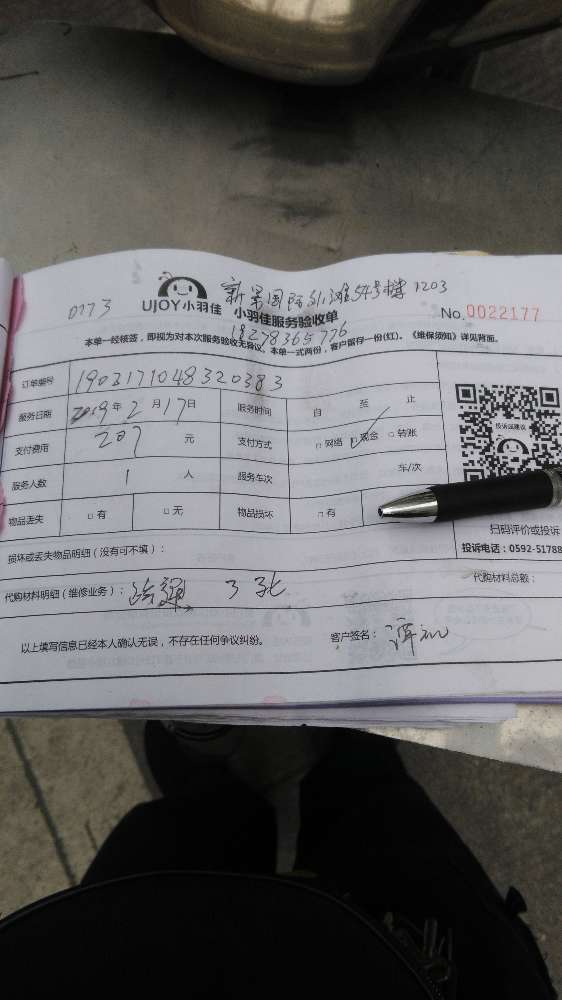 新景国际外滩54号楼1203
0773
UJOY小羽佳 小羽佳服务验收单
No.0022177
18278365776
本单一经核签，即视为对本次服务验收无异议。本单一式两份，客户留存一份(红)。《维保须知》详见背面。
订单编号 1902171048320383
服务日期 2019年 2月 17日 服务时间 自 至 止
支付费用 207 元 支付方式 □网络 ☑现金 □转账
投诉或建议
服务人数 1 人 服务车次 车/次
物品丢失 □有 □无 物品损坏 □有
扫码评价或投诉
投诉电话：0592-51788
损坏或丢失物品明细（没有可不填）：
代购材料明细（维修业务）： 了孔
代购材料总额：
以上填写信息已经本人确认无误，不存在任何争议纠纷。 客户签名：